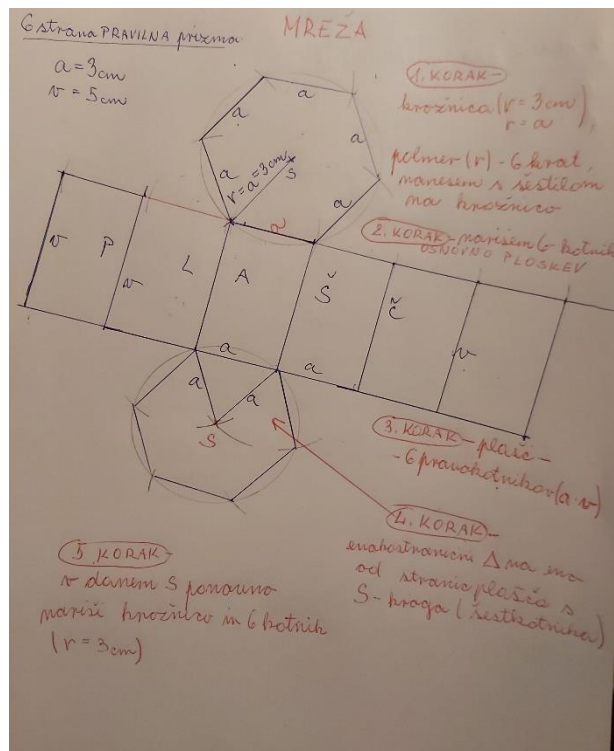 6 strana PRAVILNA prizma
MREŽA
a = 3 cm
v = 5 cm
1. KORAK -
krožnica (r = 3 cm)
r = a
polmer (r) - 6 krat
nanesem s šestilom
na krožnico
2. KORAK - narišem 6-kotnik
OSNOVNO PLOSKEV
a
a
a
a
a
a
r = a = 3 cm
S
a
v
P
v
L
A
Š
Č
v
a
a
a
a
S
3. KORAK - plašč -
- 6 pravokotnikov (a · v)
4. KORAK -
enakostranični Δ na eno
od stranic plašča s
S - kroga (šestkotnika)
5. KORAK -
v danem S ponovno
nariši krožnico in 6 kotnik
(r = 3 cm)